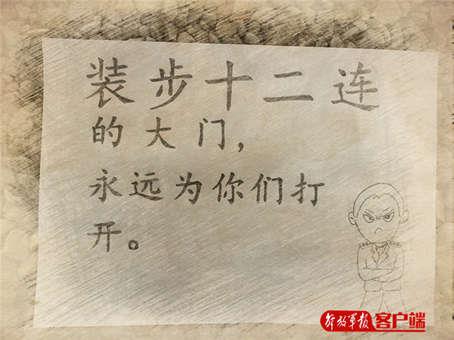 装步十二连
的大门，
永远为你们打
开。
解放军报 客户端